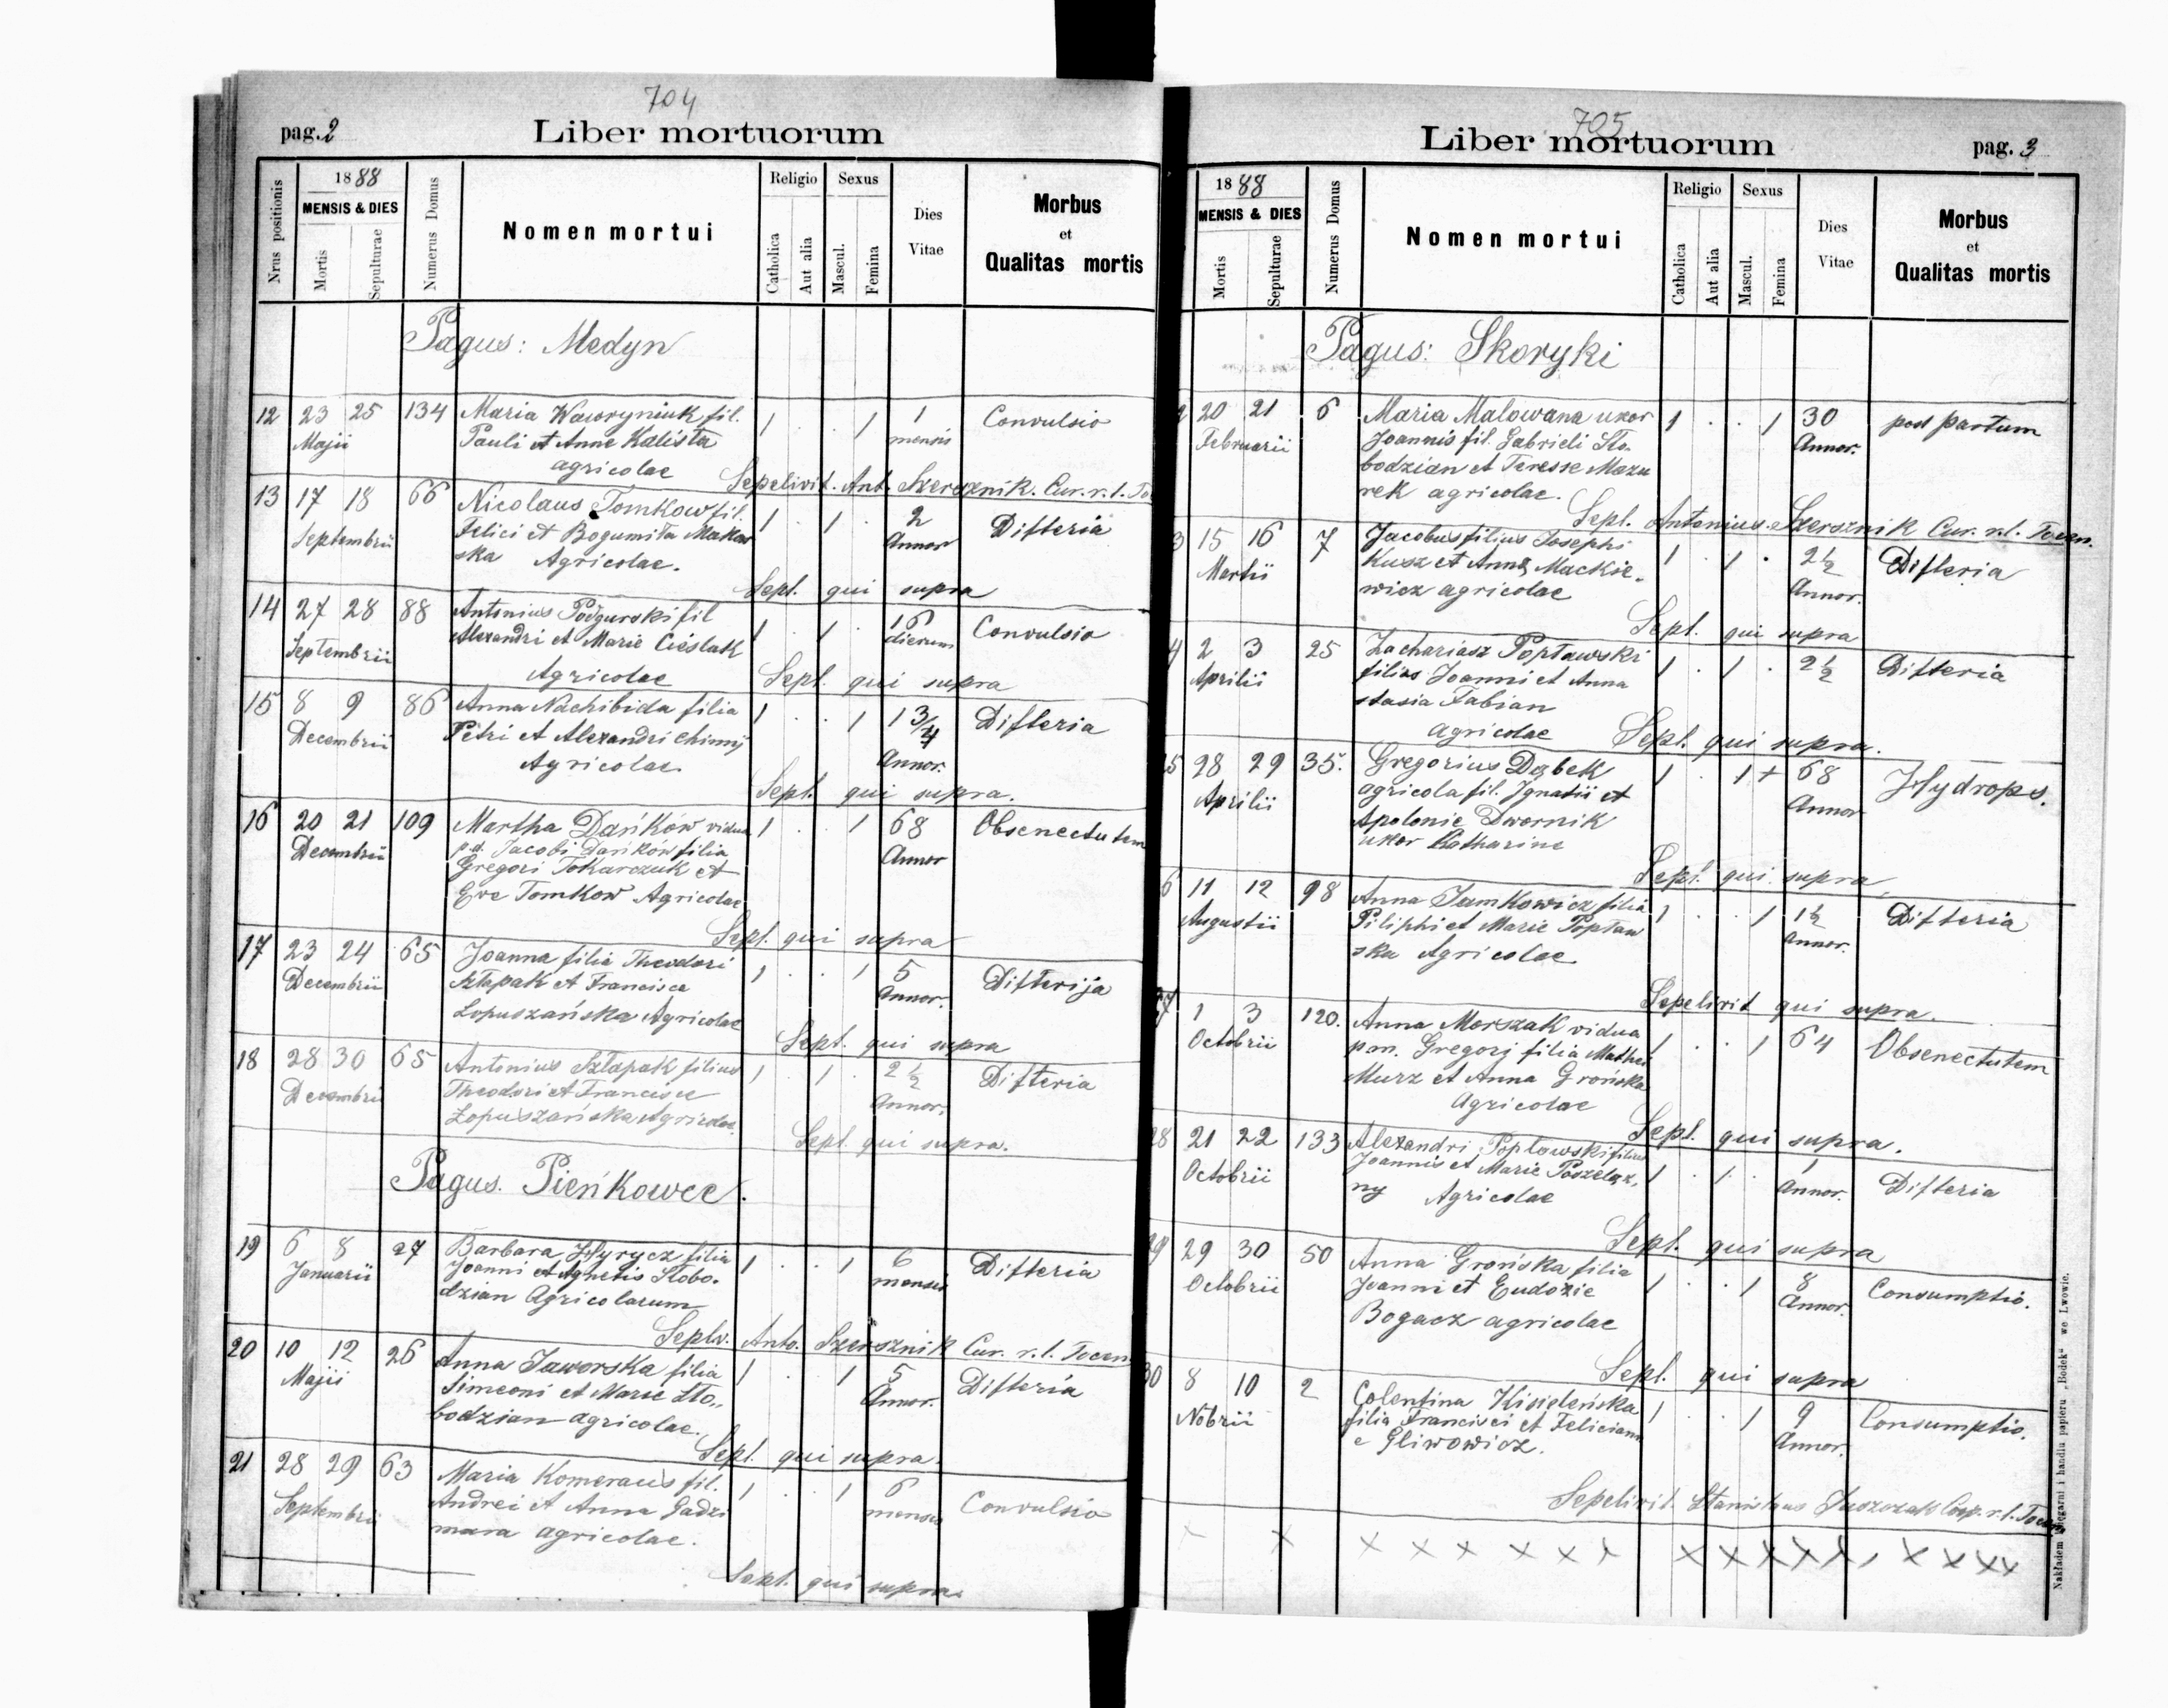 704
pag. 2
Liber mortuorum
Nrus positionis
1888
MENSIS & DIES
Mortis
Sepulturae
Numerus Domus
Nomen mortui
Religio
Catholica
Aut alia
Sexus
Mascul.
Femina
Dies
Vitae
Morbus
et
Qualitas mortis
Pagus: Medyn
12 23 25 134 Maria Wawryniuk fil. 1 . . 1 1 Convulsio
Majii Pauli et Anne Kalista mensis
agricolae
Sepelivit. Ant. Szersznik. Cur. r. l.
13 17 18 66 Nicolaus Tomkow fil. 1 . 1 . 2 Difteria
Septembrii Felici et Bogumiła Makow Annor
ska Agricolae.
Sepl. qui supra
14 27 28 88 Antonius Podgurski fil 1 . 1 . 16 Convulsio
Septembrii Alexandri et Marie Cieślak dierum
Agricolae
Sepl. qui supra
15 8 9 86 Anna Nachibida filia 1 . . 1 1 3/4 Difteria
Decembrii Petri et Alexandri Chimij Annor.
Agricolae.
Sepl. qui supra.
16 20 21 109 Martha Dańków vidua 1 . . 1 68 Obsenectutem
Decembrii p.d. Jacobi Dańków filia Annor
Gregori Tokarczuk et
Eve Tomkow Agricolae
Sepl. qui supra
17 23 24 65 Joanna filia Theodori 1 . . 1 5 Difterija
Decembrii Sztapak et Francisce Annor.
Lopuszańska Agricolae
Sepl. qui supra
18 28 30 65 Antonius Sztapak filius 1 . 1 . 2 1/2 Difteria
Decembrii Theodori et Francisce Annor.
Lopuszańska Agricolae.
Sepl. qui supra.
Pagus. Pieńkowce.
19 6 8 27 Barbara Hyrycz filia 1 . . 1 6 Difteria
Januarii Joanni et Agnetis Słobo- mensis
dzian Agricolarum
Seplv. Anto. Szersznik Cur. r. l. Tocen
20 10 12 26 Anna Jaworska filia 1 . . 1 5 Difteria
Majii Simeoni et Marie Sło- Annor.
bodzian agricolae.
Sepl. qui supra.
21 28 29 63 Maria Komeraus fil. 1 . . 1 6 Convulsio
Septembrii Andrei et Anna Gadzi mensis
mara agricolae.
Sepl. qui supra.
705
Liber mortuorum
pag. 3
1888
MENSIS & DIES
Mortis
Sepulturae
Numerus Domus
Nomen mortui
Religio
Catholica
Aut alia
Sexus
Mascul.
Femina
Dies
Vitae
Morbus
et
Qualitas mortis
Pagus: Skoryki
2 20 21 6 Maria Malowana uxor 1 . . 1 30 post partum
Februarii Joannis fil. Gabrieli Sło- Annor.
bodzian et Teresse Mazu
rek agricolae.
Sepl. Antonius Szersznik Cur. r. l. Tocen.
3 15 16 7 Jacobus filius Josephi 1 . 1 . 2 1/2 Difteria
Martii Kusz et Anna Mackie- Annor.
wicz agricolae
Sepl. qui supra
4 2 3 25 Zachariasz Popławski 1 . 1 . 2 1/2 Difteria
Aprilii filius Joanni et Anna
stasia Fabian
agricolae
Sepl. qui supra.
5 28 29 35. Gregorius Dąbek 1 . 1 + 68 Hydrops.
Aprilii agricola fil. Ignatii et Annor
Apolonie Dwornik
uxor Katharine
Sepl. qui supra
6 11 12 98 Anna Jamkowicz filia 1 . . 1 1 1/2 Difteria
Augustii Piliphi et Marie Popław Annor.
ska Agricolae
Sepelivit qui supra.
27 1 3 120. Anna Morszak vidua 1 . . 1 64 Obsenectutem
Octobrii pm. Gregorj filia Mathei
Murz et Anna Grońska
Agricolae
Sepl. qui supra.
28 21 22 133 Alexandri Poplowski filius 1 . 1 . 1 Difteria
Octobrii Joannis et Marie Poszelęz- Annor.
ny Agricolae
Sepl. qui supra
29 29 30 50 Anna Grońska filia 1 . . 1 8 Consumptio.
Octobrii Joanni et Eudoxie Annor.
Bogacz agricolae
Sepl. qui supra
30 8 10 2 Colentina Kisieleńska 1 . . 1 9 Consumptio.
Nobrii filia Francisci et Feliciann Annor.
e Gliwowicz.
Sepelivit Stanislaus Juszczak Coop. r. l. Tocen
× × × × × × × × × × × × × × × × × ×
Nakładem księgarni i handlu papieru „Bodek" we Lwowie.